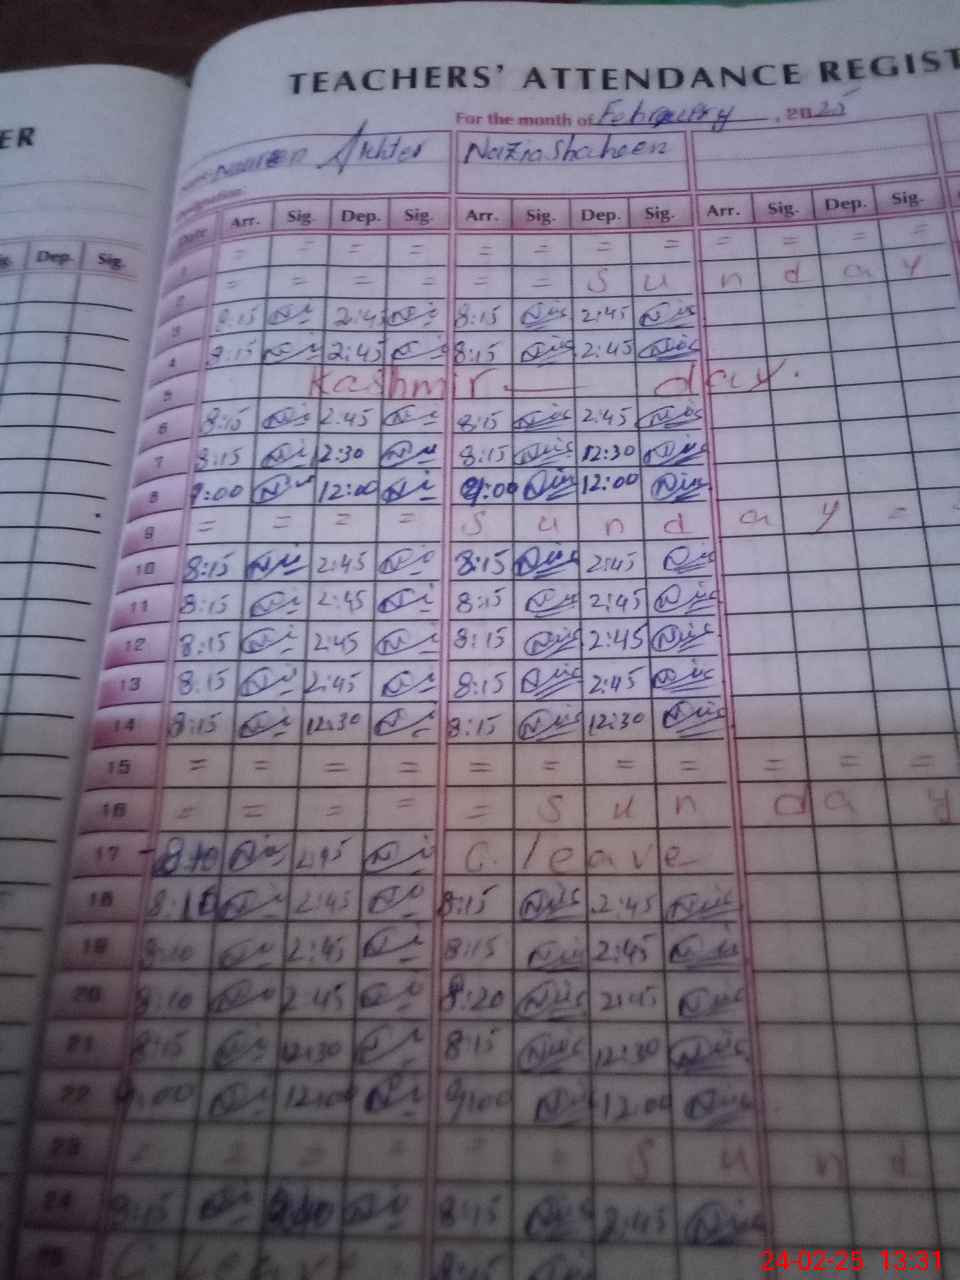 TEACHERS' ATTENDANCE REGIST
ER
For the month of February, 2025
Akhter Nazia Shaheen
Dep. Sig.
Date Arr. Sig. Dep. Sig. Arr. Sig. Dep. Sig. Arr. Sig. Dep. Sig.
1 = = = = = = = = = = = =
2 = = = = = = S u n d a y
3 8:15 2:45 8:15 2:45
4 8:15 2:45 8:15 2:45
5 Kashmir — day.
6 8:15 2:45 8:15 2:45
7 8:15 12:30 8:15 12:30
8 9:00 12:00 9:00 12:00
9 = = = = S u n d a y =
10 8:15 2:45 8:15 2:45
11 8:15 2:45 8:15 2:45
12 8:15 2:45 8:15 2:45
13 8:15 2:45 8:15 2:45
14 8:15 12:30 8:15 12:30
15 = = = = = = = = = = =
16 = = = = = S u n d a y
17 8:10 2:45 C. leave
18 8:10 2:45 8:15 2:45
19 8:10 2:45 8:15 2:45
20 8:10 2:45 8:20 2:45
21 8:15 12:30 8:15 12:30
22 9:00 12:00 9:00 12:00
23 = = = = = = S u n d
24 8:15 8:15 2:45
25 8:15
24-02-25 13:31